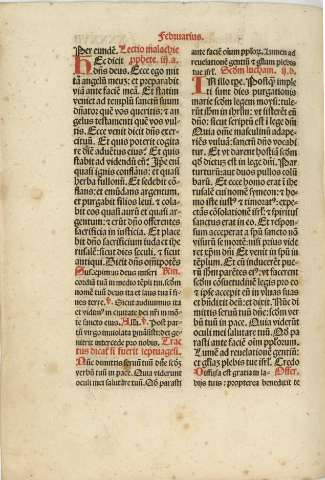 Februarius.
Per eundē. Lectio malachie
Hec dicit prophete. iij. a.
dn̄s deus. Ecce ego mit
ta angelū meū: et preparabit
via ante faciē mea. Et statim
veniet ad templū sanctū suum
dn̄ator: quē vos queritis: et an
gelus testamenti quē vos vul
tis. Ecce venit dicit dn̄s exer
cituū. Et quis poterit cogita
re diē aduētus eius: Et quis
stabit ad vidēdū eū: Ipe eni
quasi ignis conflans: et quasi
herba fullonū. Et sedebit cō
flans: et emūdans argentum:
et purgabit filios leui. Et cola
bit eos quasi aurū et quasi ar
gentum: et erūt dn̄o offerentes
sacrificia in iusticia. Et place
bit dn̄o sacrificiū iuda et ihe
rusalē: sicut dies seculi. et sicut
antiqui. Dicit dn̄s omīpotēs
Suscepimus deus miseri
cordiā tuā in medio tēpli tui. scdm̄
nomē tuū deus ita et laus tua in fi
nes terre. v. Sicut audiuimus ita
et vidim⁹ in ciuitate dei nr̄i in mō
te sancto eius. Alla. v. Post par
tū virgo inuiolata pmāsisti: dei ge
nitrix intercede pro nobis. Trac
tus dicat si fuerit septuagesi.
Nūc dimittis seruū tuū dn̄e: scdm̄
verbū tuū in pace. Quia viderūt
oculi mei salutare tuū. Qd̄ parasti
ante faciē oīum pplox. Lumen ad
reuelationē gentiū: et gliam plebis
tue isrl. Scdm̄ lucham. ij. d.
In illo tpe. Postq̄ imple
ti sunt dies purgationis
marie scdm̄ legem moysi: tule
rūt ihm̄ in iherusalē: vt sisterēt eū
dn̄o: sicut scriptū est in lege dn̄i.
Quia om̄e masculinū adape
riēs vuluā: sanctū dn̄o vocabi
tur. Et vt darent hostiā scdm̄
qd̄ dictus est in lege dn̄i. Par
turturū: aut duos pullos colū
barū. Et ecce homo erat in ihe
rusalē cui nomē symeon: et ho
mo iste iust⁹ et timorat⁹: expe
ctās cōsolationē isrl: et spiritus
sanctus erat in eo. Et respon
sum acceperat a spū sancto nō
visurū se mortē: nisi prius videt
ret xpm̄ dn̄i. Et venit in spū in
tēplum. Et cū inducerēt pue
rū ihm̄ parētes ei⁹: vt facerent
scdm̄ cōsuetudinē legis pro eo
et ipse accepit eū in vlnas suas
et bn̄dixit deū: et dixit. Nūc di
mittis seruū tuū dn̄e: scdm̄ ver
bū tuū in pace. Quia viderūt
oculi mei salutare tuū. Qd̄ pa
rasti ante faciē oīm pplorum.
Lumē ad reuelationē gentiū:
et gliam plebis tue isrl. Credo
Diffusa est gratia in la- Offer.
bijs tuis: propterea benedixit te